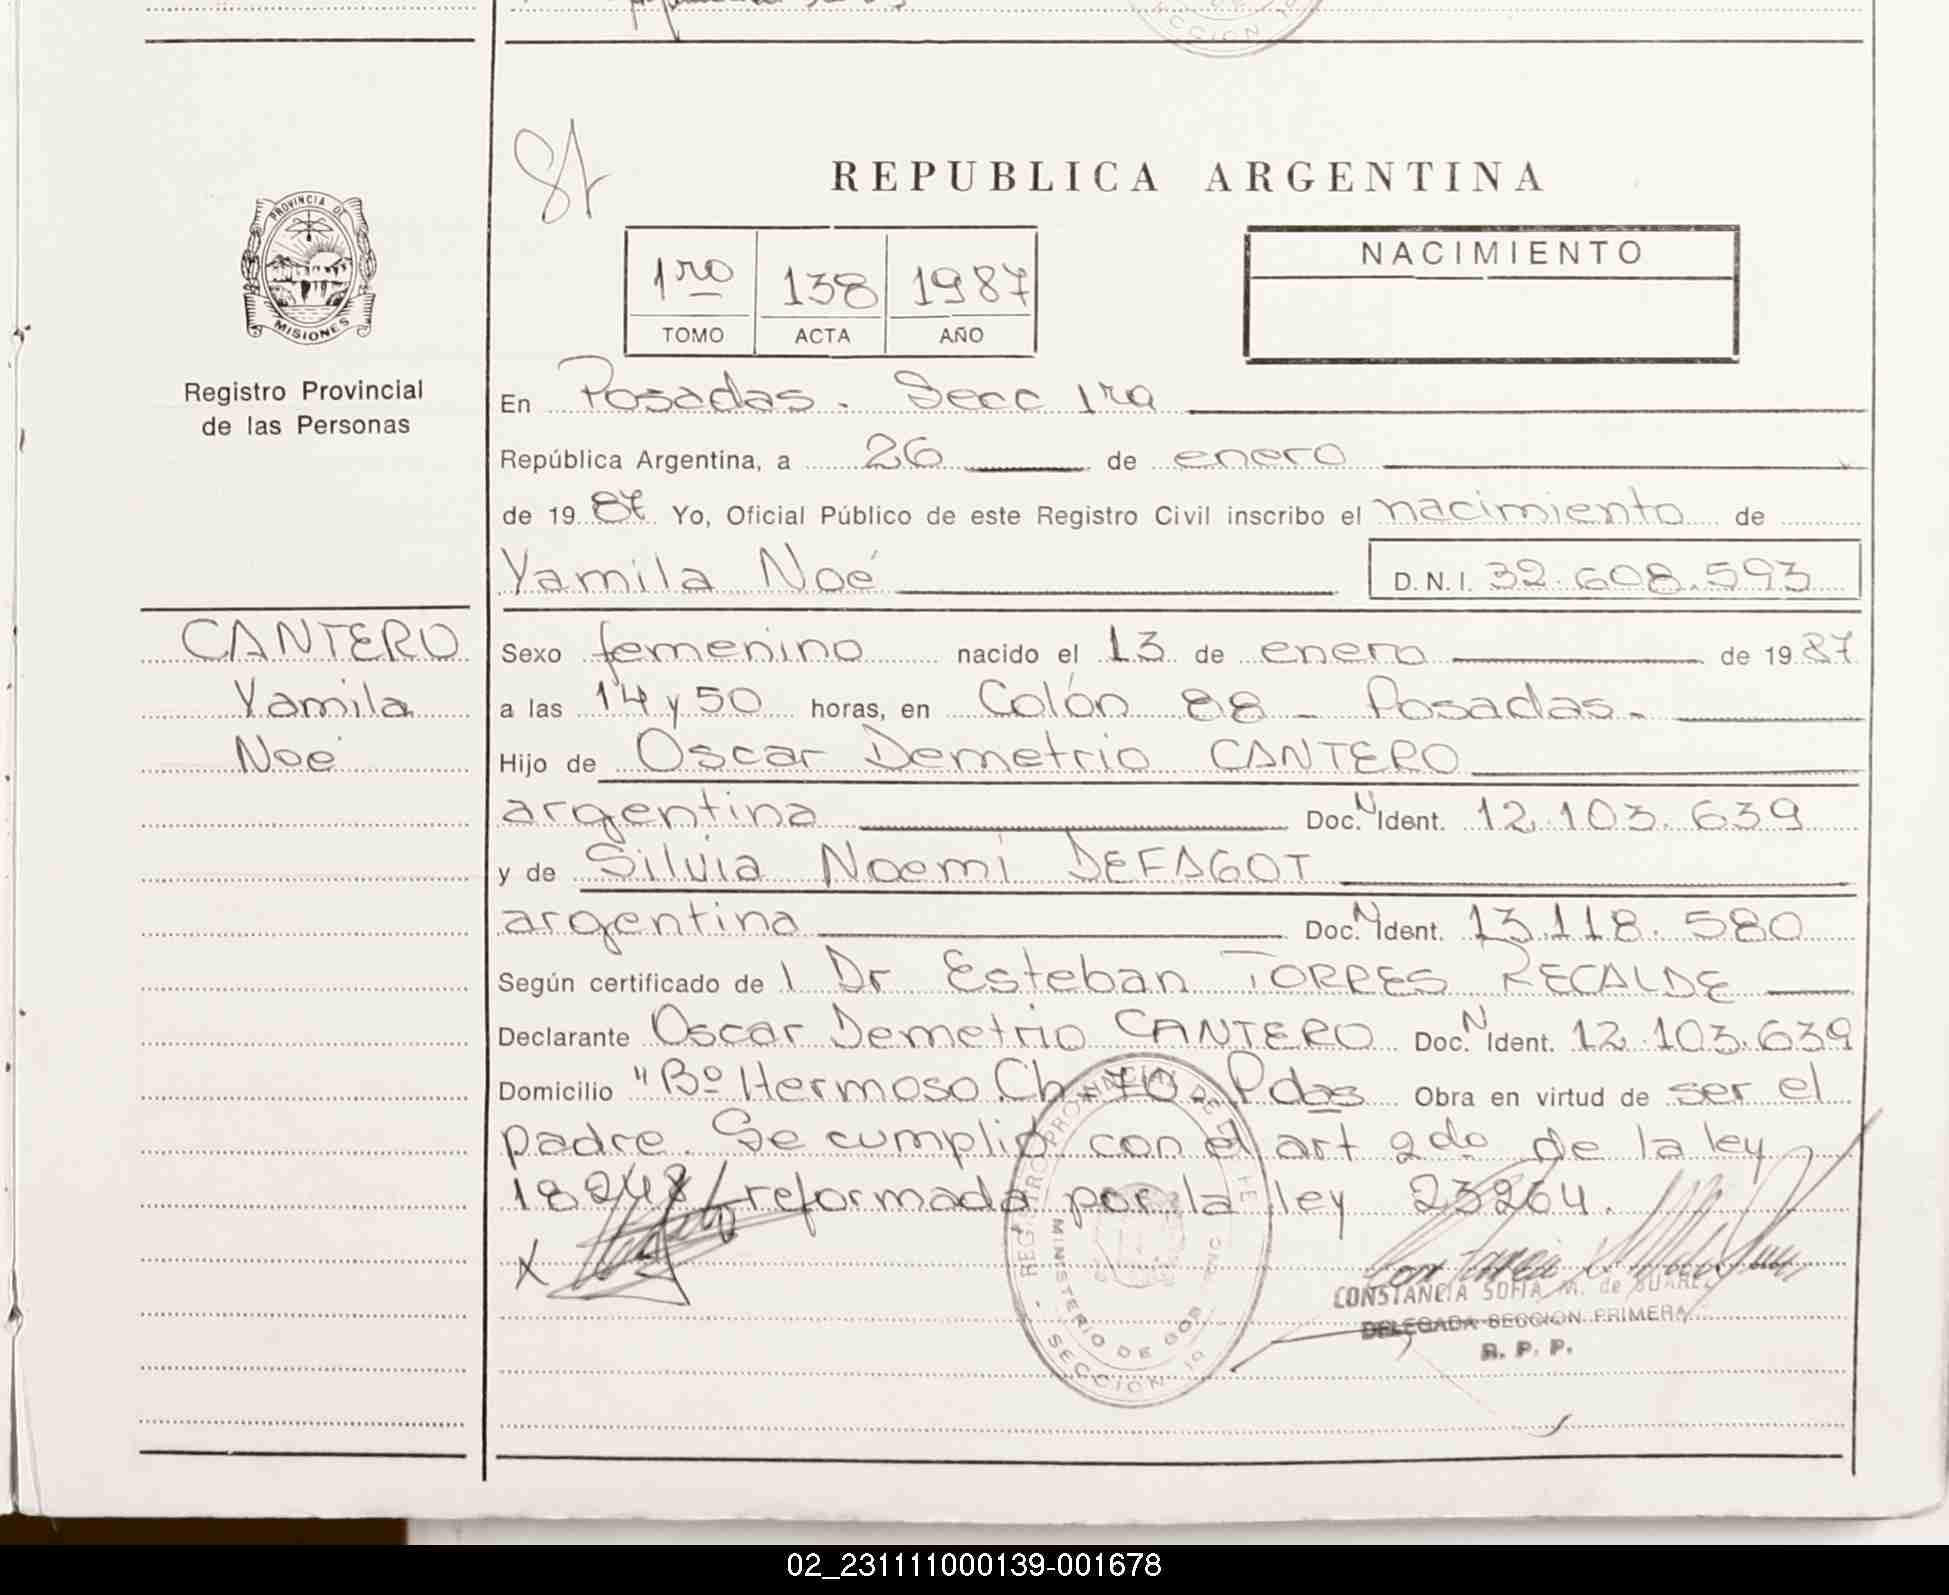 REPUBLICA ARGENTINA
PROVINCIA DE
MISIONES
Registro Provincial
de las Personas
1ro 138 1987
TOMO ACTA AÑO
NACIMIENTO
En Posadas. Secc 1ra
República Argentina, a 26 de enero
de 1987 Yo, Oficial Público de este Registro Civil inscribo el nacimiento de
Yamila Noé D.N.I. 32.608.593
CANTERO
Yamila
Noé
Sexo femenino nacido el 13 de enero de 1987
a las 14 y 50 horas, en Colón 88 - Posadas.
Hijo de Oscar Demetrio CANTERO
argentina Doc. N Ident. 12.103.639
y de Silvia Noemi DEFAGOT
argentina Doc. N Ident. 13.118.580
Según certificado de l Dr Esteban TORRES RECALDE
Declarante Oscar Demetrio CANTERO Doc. N Ident. 12.103.639
Domicilio "Bº Hermoso Ch 70 Pdas Obra en virtud de ser el
padre. Se cumplió con el art 2do de la ley
18248 reformada por la ley 23264.
X
CONSTANCIA SOFIA M. de SUAREZ
DELEGADA SECCION PRIMERA
R. P. P.
MINISTERIO DE GOB
SECCION 1º
02_231111000139-001678